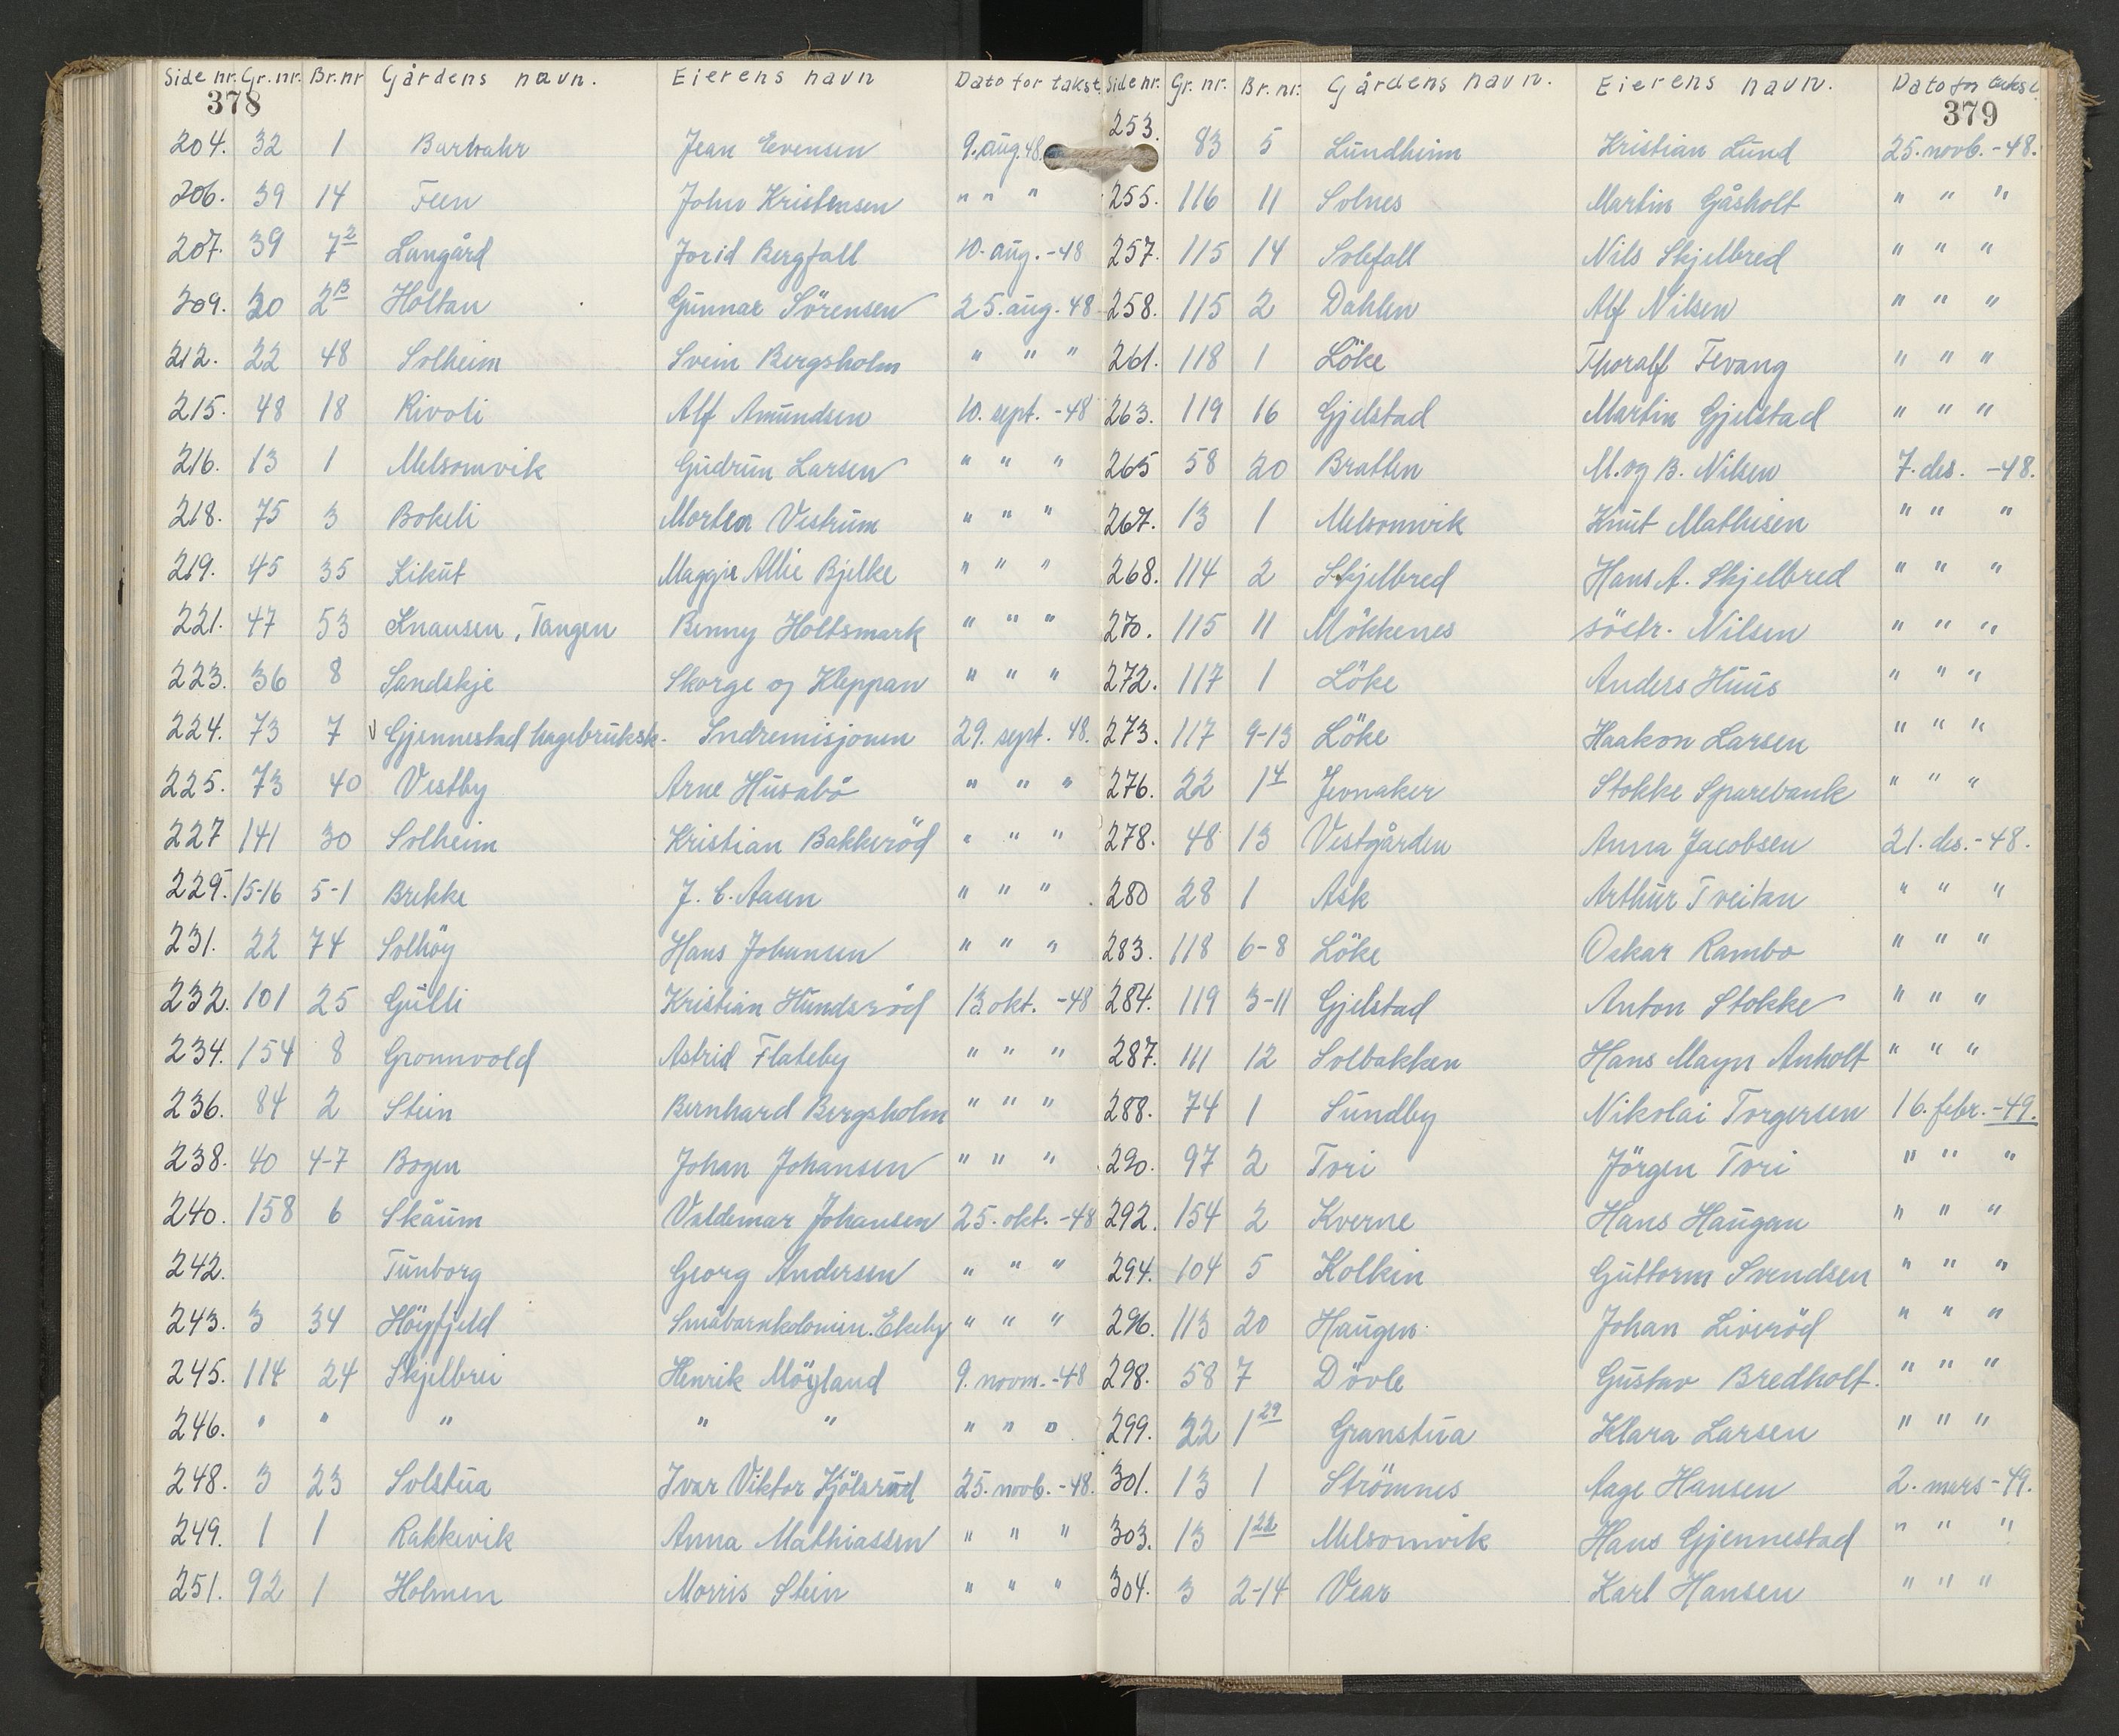 Side nr. Gr. nr. Br. nr Gårdens navn. Eierens navn Dato for takst.
378
204. 32 1 Jean Evensen 9. aug. 48.
206. 39 14 Feen John Kristensen " " "
207. 39 7 2 Langård Jorid Bergfall 10. aug. -48
209. 30 2 B Holtan Gunnar Sörensen 25. aug. 48
212. 22 48 Solheim Svein Bergsholm " " "
215. 48 18 Rivoli Alf Amundsen 10. sept. -48
216. 13 1 Melsomvik Gudrun Larsen " " "
218. 75 3 Bokeli Morten Vestrum " " "
219. 45 35 Kikut Maggie Allie Bjelke " " "
221. 47 53 Knausen, Tangen Benny Holtsmark " " "
223. 36 8 Sandskje Skorge og Kleppan " " "
224. 73 7 Gjennestad hagebruksk. Indremisjonen 29. sept. 48.
225. 73 40 Vestby Arne Husabö " " "
227 141 30 Solheim Kristian Bakkeröd " " "
229. 15-16 5-1 Brekke J. C. Aasen " " "
231. 22 74 Solhöy Hans Johansen " " "
232. 101 25 Gulli Kristian Hundsröd 13. okt. -48
234. 154 8 Gronnvold Astrid Flateby " " "
236. 84 2 Stein Bernhard Bergsholm " " "
238. 40 4-7 Bogen Johan Johansen " " "
240. 158 6 Skaum Valdemar Johansen 25. okt. -48
242. Tunborg Georg Andersen " " "
243. 3 34 Höyfjeld Småbarnkolonien. Ekeby " " "
245. 114 24 Skjelbrei Henrik Möyland 9. novm. -48
246. " " " " " " " "
248. 3 23 Solstua Ivar Viktor Kjölsrud 25. novb. -48.
249. 1 1 Rakkevik Anna Mathiassen " " "
251. 92 1 Holmen Morris Stein " " "
Side nr. Gr. nr. Br. nr. Gårdens navn. Eierens navn. Dato for takst.
379
253. 83 5 Lundheim Kristian Lund 25. novb. -48.
255. 116 11 Solnes Martin Gåsholt " " "
257. 115 14 Solefall Nils Skjelbred " " "
258. 115 2 Dahlen Alf Nilsen " " "
261. 118 1 Löke Thoralf Fevang " " "
263. 119 16 Gjelstad Martin Gjelstad " " "
265 58 20 Bratten M. og B. Nilsen 7. des. -48.
267. 13 1 Melsomvik Knut Mathisen " " "
268. 114 2 Skjelbred Hans A. Skjelbred " " "
270. 115 11 Mökkenes söstr. Nilsen " " "
272. 117 1 Löke Anders Huus " " "
273. 117 9-13 Löke Haakon Larsen " " "
276. 22 1 4 Jevnaker Stokke Sparebank " " "
278. 48 13 Vestgården Anna Jacobsen 21. des. -48.
280 28 1 Ask Arthur Tveitan " " "
283. 118 6-8 Löke Oskar Rambo " " "
284. 119 3-11 Gjelstad Anton Stokke " " "
287. 111 12 Solbakken Hans Mayn Anholt " " "
288. 74 1 Sundby Nikolai Torgersen 16. febr. -49.
290. 97 2 Tori Jörgen Tori " " "
292. 154 2 Kverne Hans Haugan " " "
294. 104 5 Kolkin Guttorm Svendsen " " "
296. 113 20 Haugen Johan Liveröd " " "
298. 58 7 Dövle Gustav Bredholt. " " "
299. 22 1 29 Granstua Klara Larsen " " "
301. 13 1 Strömnes Aage Hansen 2. mars -49.
303. 13 1 22 Melsomvik Hans Gjennestad " " "
304. 3 2-14 Vear Karl Hansen " " "